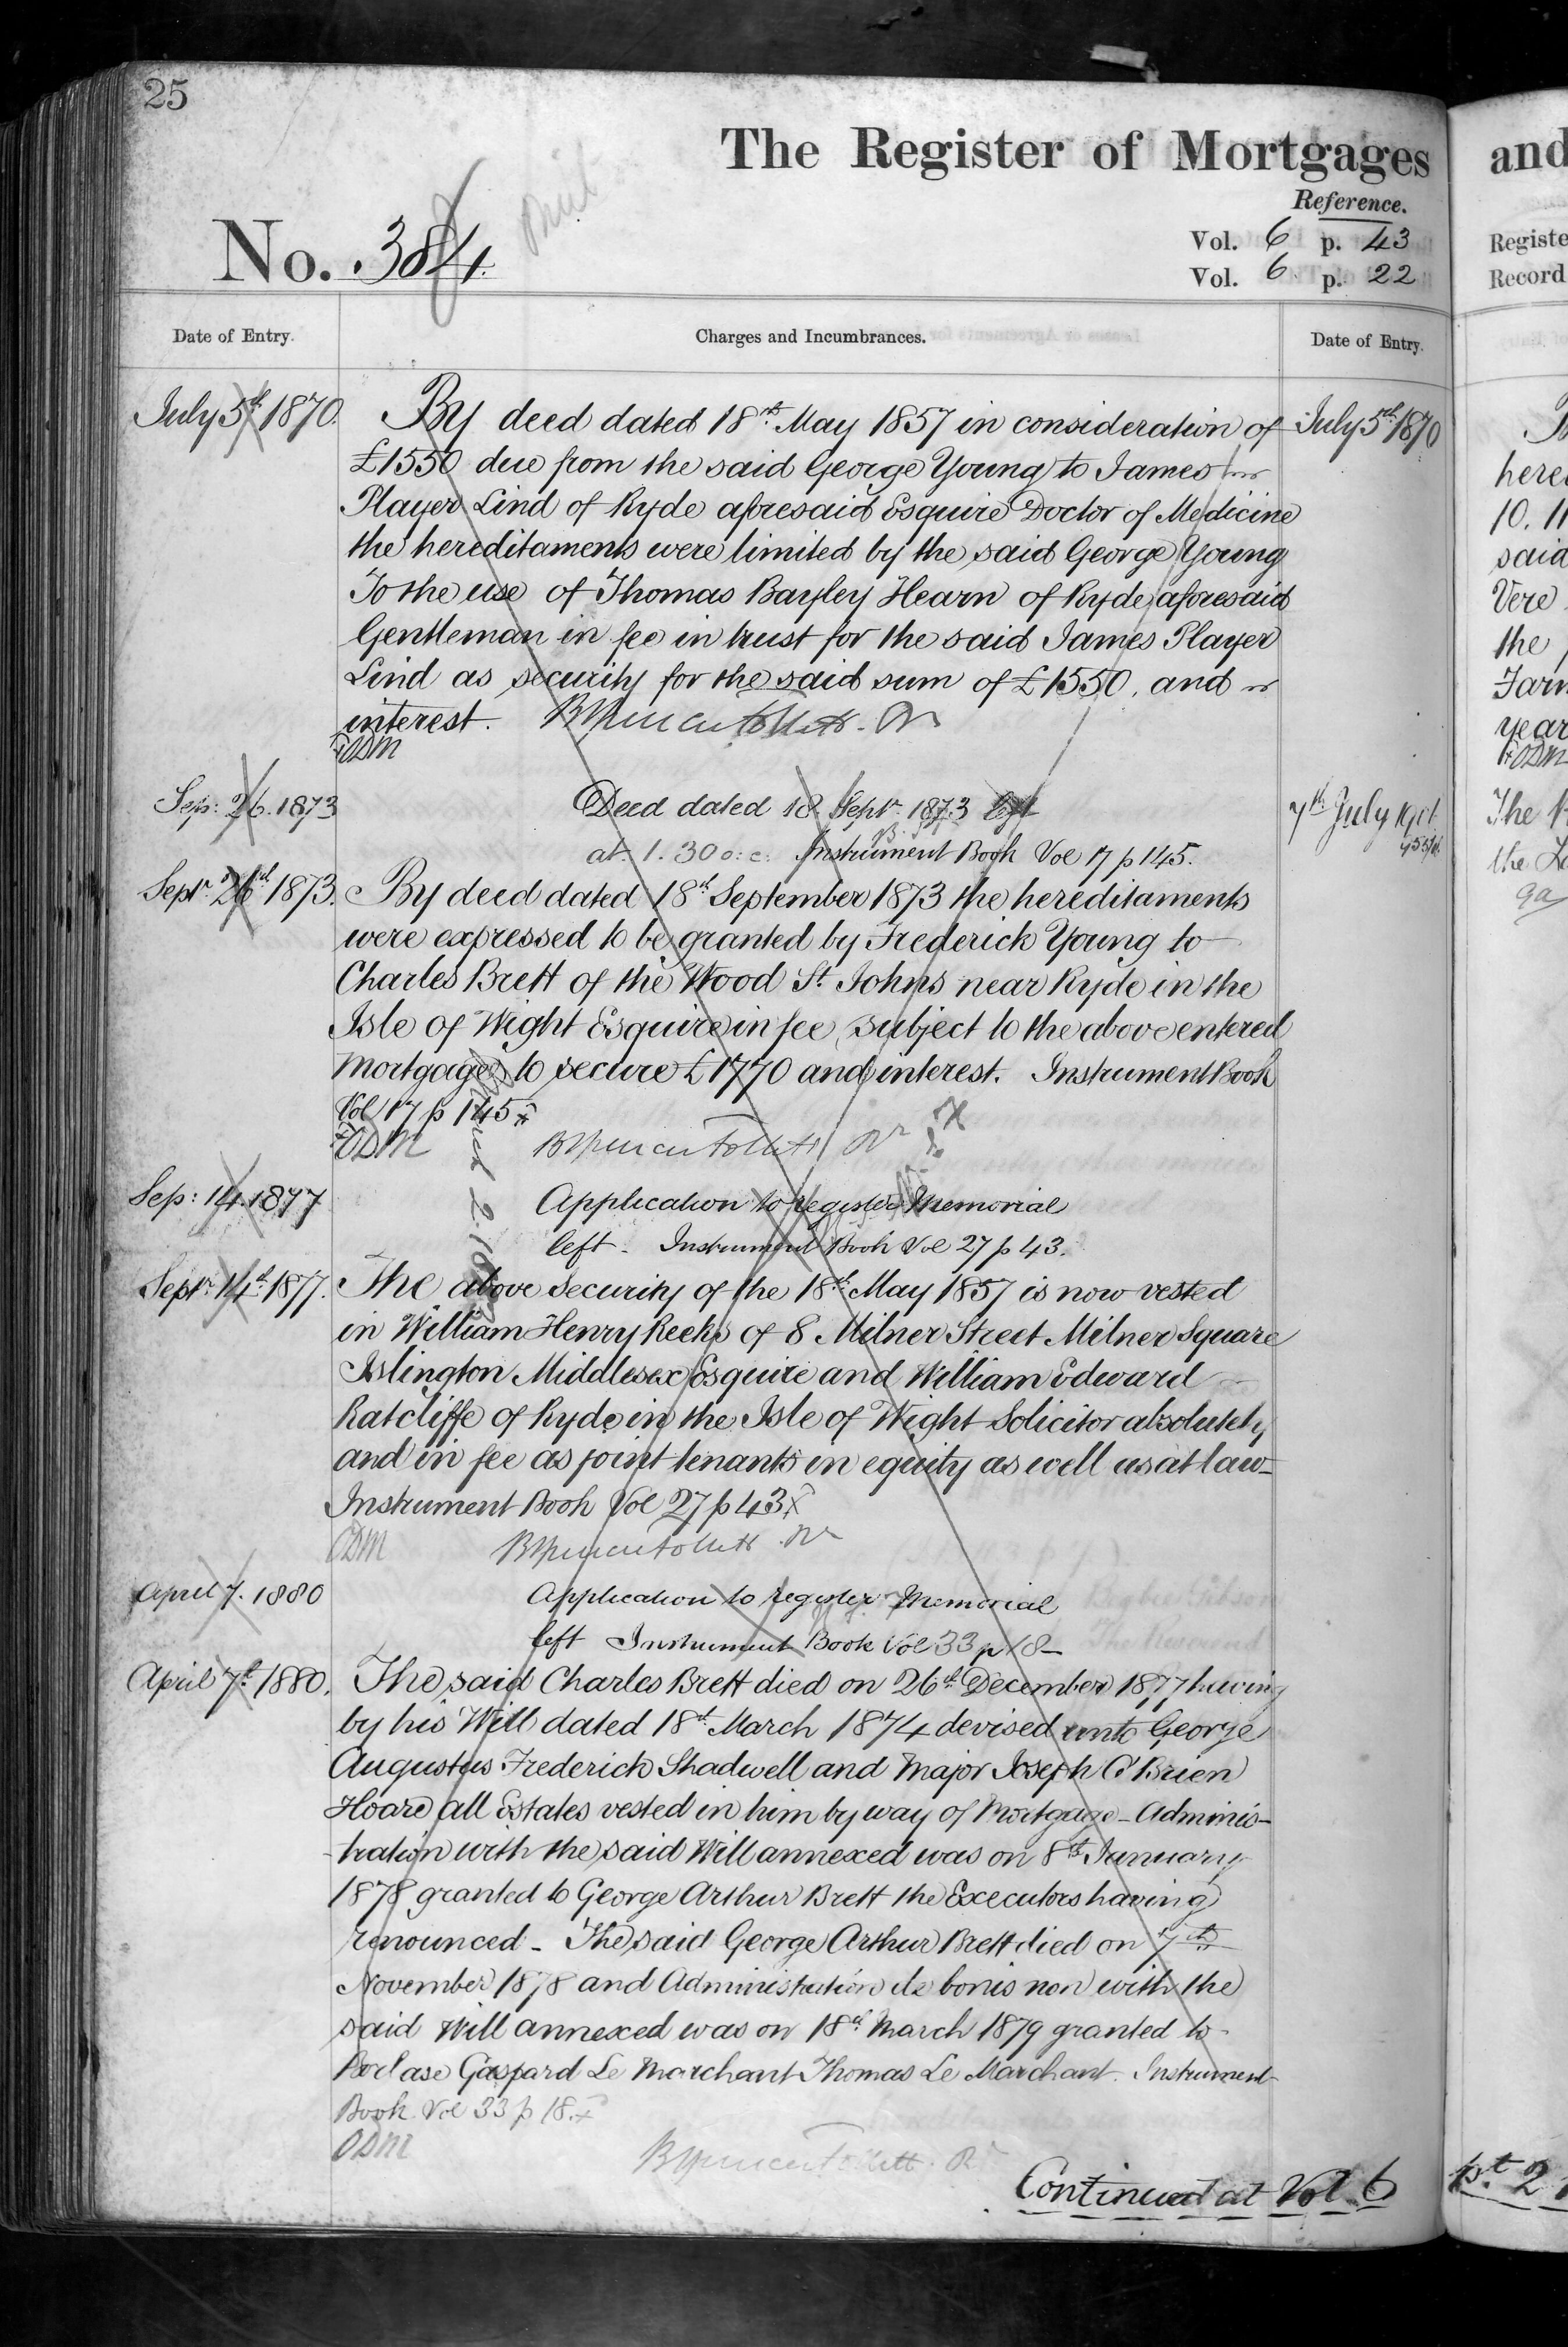 25
The Register of Mortgages
Reference.
No. 384.
Vol. 6 p. 43
Vol. 6. p. 22
Date of Entry.
Charges and Incumbrances.
Date of Entry.
July 5th 1870.
By deed dated 18th May 1857 in consideration of
£1550 due from the said George Young to James
Player Lind of Ryde aforesaid Esquire Doctor of Medicine
the hereditaments were limited by the said George Young
To the use of Thomas Bayley Hearn of Ryde aforesaid
Gentleman in fee in trust for the said James Player
Lind as security for the said sum of £1550, and
interest.
ODM
July 5th 1870
Sep: 26. 1873
Deed dated 18 Septr 1873 left
at 1.30 o:c: Instrument Book Vol 17 p 145.
7th July 1901
Septr 26th 1873.
By deed dated 18th September 1873 the hereditaments
were expressed to be granted by Frederick Young to
Charles Brett of the Wood St. Johns near Ryde in the
Isle of Wight Esquire in fee, subject to the above entered
Mortgage to secure £1770 and interest. Instrument Book
Vol 17 p 145
ODM
Sep: 14. 1877
Application to register Memorial
left. Instrument Book Vol 27 p 43.
Septr 14th 1877.
The above security of the 18th May 1857 is now vested
in William Henry Reeks of 8 Milner Street Milner Square
Islington Middlesex Esquire and William Edward
Ratcliffe of Ryde in the Isle of Wight Solicitor absolutely
and in fee as joint tenants in equity as well as at law
Instrument Book Vol 27 p 43
ODM
April 7. 1880
Application to register Memorial
left Instrument Book Vol 33 p 18
April 7th 1880.
The said Charles Brett died on 26th December 1877 having
by his Will dated 18th March 1874 devised unto George
Augustus Frederick Shadwell and Major Joseph O'Brien
Hoare all Estates vested in him by way of Mortgage - Adminis-
-tration with the said Will annexed was on 8th January
1878 granted to George Arthur Brett the Executors having
renounced - The said George Arthur Brett died on 7th
November 1878 and Administration de bonis non with the
said Will annexed was on 18th March 1879 granted to
Borlase Gaspard Le Marchant Thomas Le Marchant. Instrument
Book Vol 33 p 18.
ODM
Continued at Vol 6
and
Registe
Record
here
10. 11
said
Vere
the
Farm
year
ODM
The
the